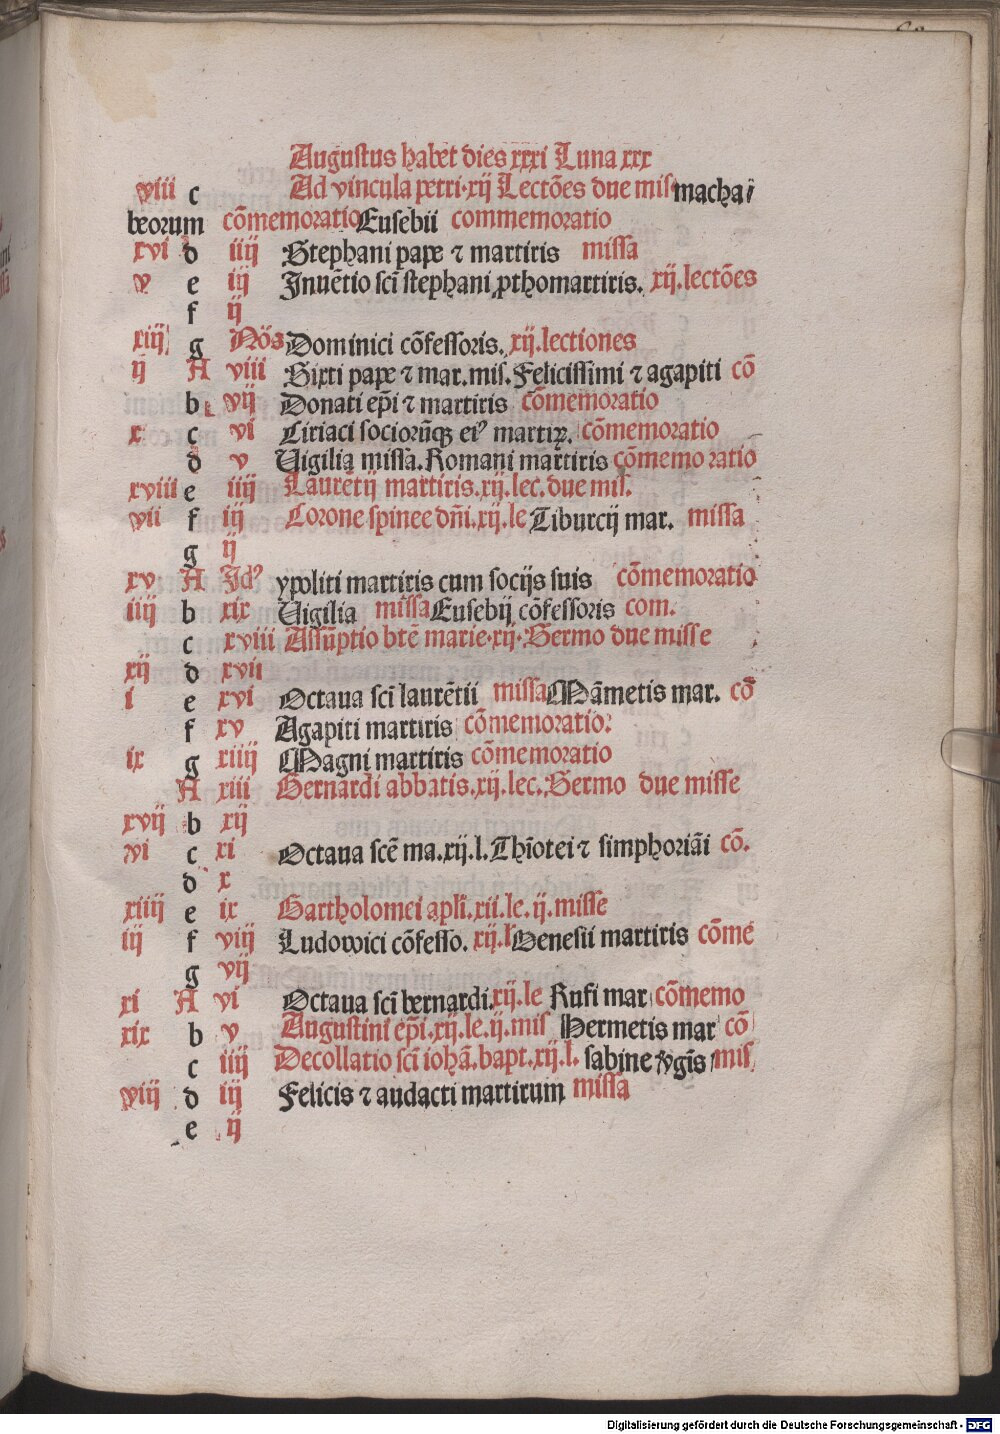 Augustus habet dies xxxi Luna xxx
viii c Ad vincula petri·xij Lectōes due mis machai
beorum cōmemoratio Eusebii commemoratio
xvi d iiij Stephani pape ⁊ martiris missa
v e iij Inuētio scī stephani ꝓthomartiris. xij.lectōes
f ij
xiij g Nōs Dominici cōfessoris. xij.lectiones
ij A viii Sixti pape ⁊ mar.mis.Felicissimi ⁊ agapiti cō
b vij Donati ep̄i ⁊ martiris cōmemoratio
x c vi Ciriaci sociorūqꝫ eiꝰ martiꝝ. cōmemoratio
d v Uigilia missa.Romani martiris cōmemoratio
xviii e iiij Laurētij martiris.xij.lec.due mis.
vii f iij Corone spinee dn̄i.xij.le Tiburcij mar. missa
g ij
xv A Idꝰ ypoliti martiris cum socijs suis cōmemoratio
iiij b xix Uigilia missa Eusebij cōfessoris com.
c xviii Assūptio btē marie·xij·Sermo due misse
xij d xvii
i e xvi Octaua scī laurētii missa Māmetis mar. cō
f xv Agapiti martiris cōmemoratio:
ix g xiiij Magni martiris cōmemoratio
A xiii Bernardi abbatis.xij.lec.Sermo due misse
xvij b xij
vi c xi Octaua scē ma.xij.l.Thīotei ⁊ simphoriāi cō.
d x
xiiij e ix Bartholomei apl̄i.xii.le.ij.misse
iij f viij Ludowici cōfesso. xij.l Genesii martiris cōme
g vij
xi A vi Octaua scī bernardi.xij.le Rufi mar cōmemo
xix b v Augustini ep̄i.xij.le.ij.mis Hermetis mar cō
c iiij Decollatio scī iohā.bapt.xij.l. sabine v̾gīs mis
viij d iij Felicis ⁊ audacti martirum missa
e ij
Digitalisierung gefördert durch die Deutsche Forschungsgemeinschaft - DFG